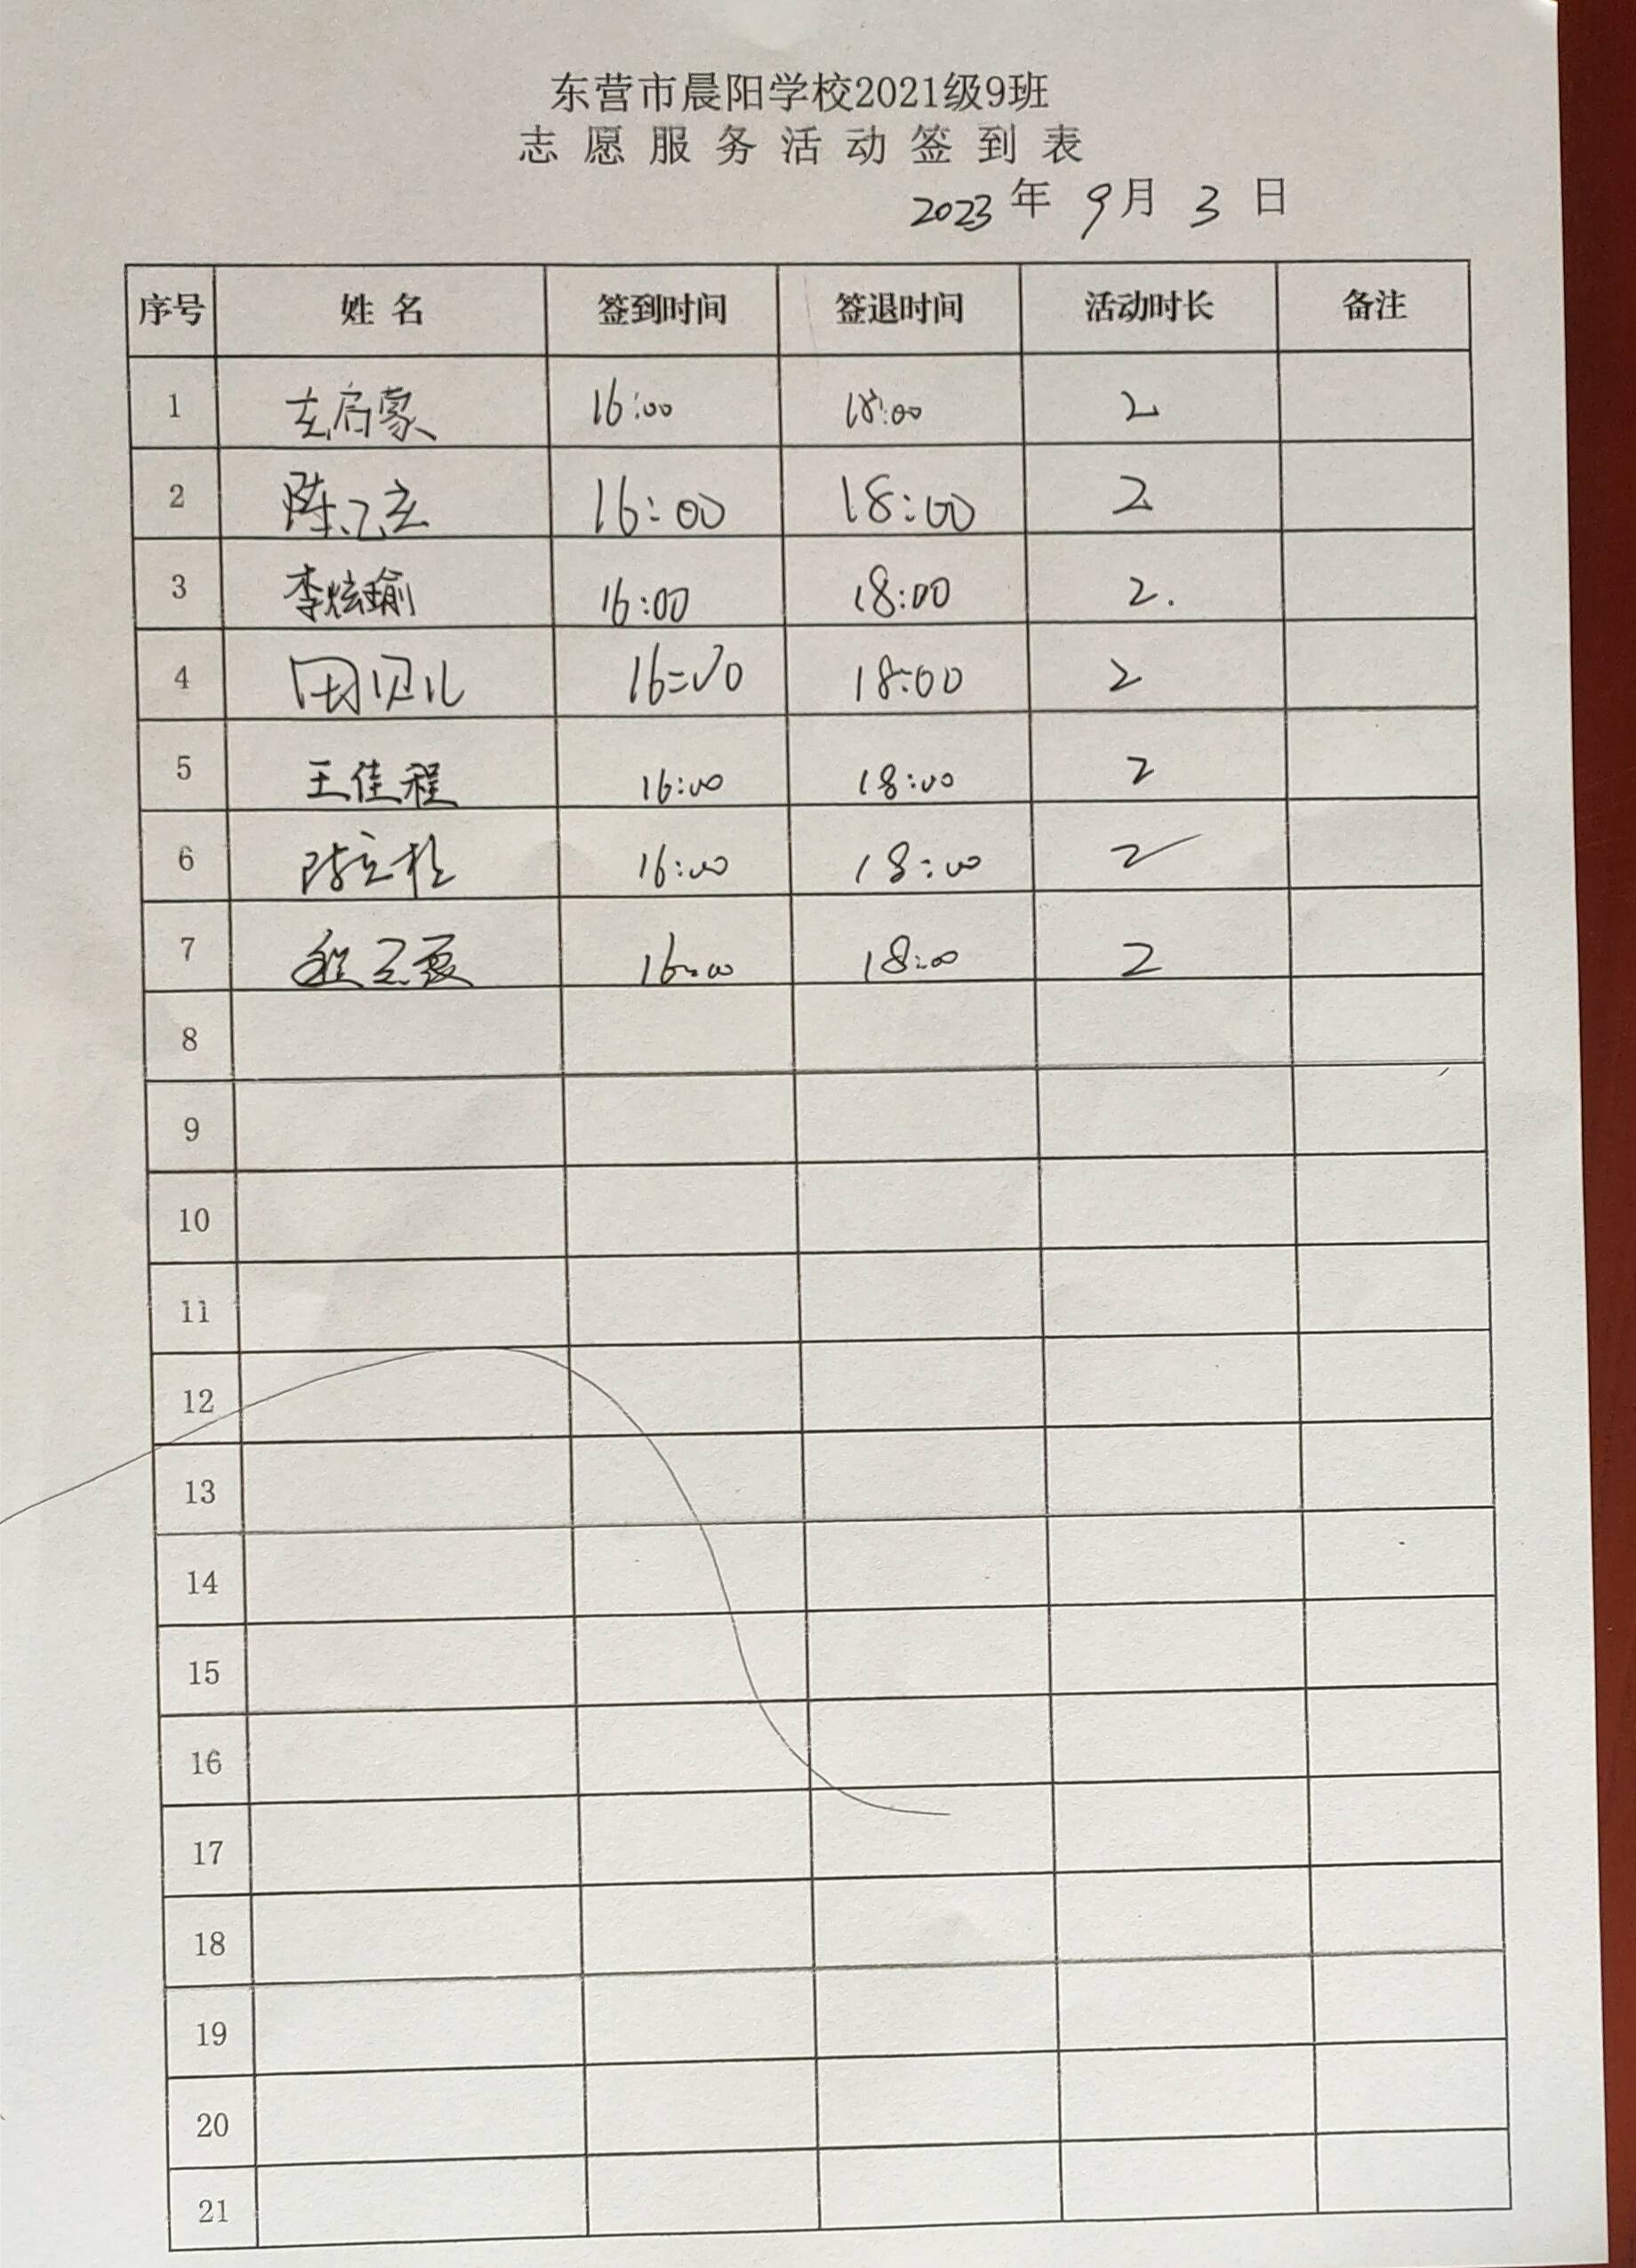 东营市晨阳学校2021级9班
志愿服务活动签到表
2023年9月3日
序号 姓名 签到时间 签退时间 活动时长 备注
1 左启蒙 16:00 18:00 2
2 陈 16:00 18:00 2
3 李炫瑜 16:00 18:00 2.
4 田贝儿 16:00 18:00 2
5 王佳程 16:00 18:00 2
6 16:00 18:00 2
7 16:00 18:00 2
8
9
10
11
12
13
14
15
16
17
18
19
20
21